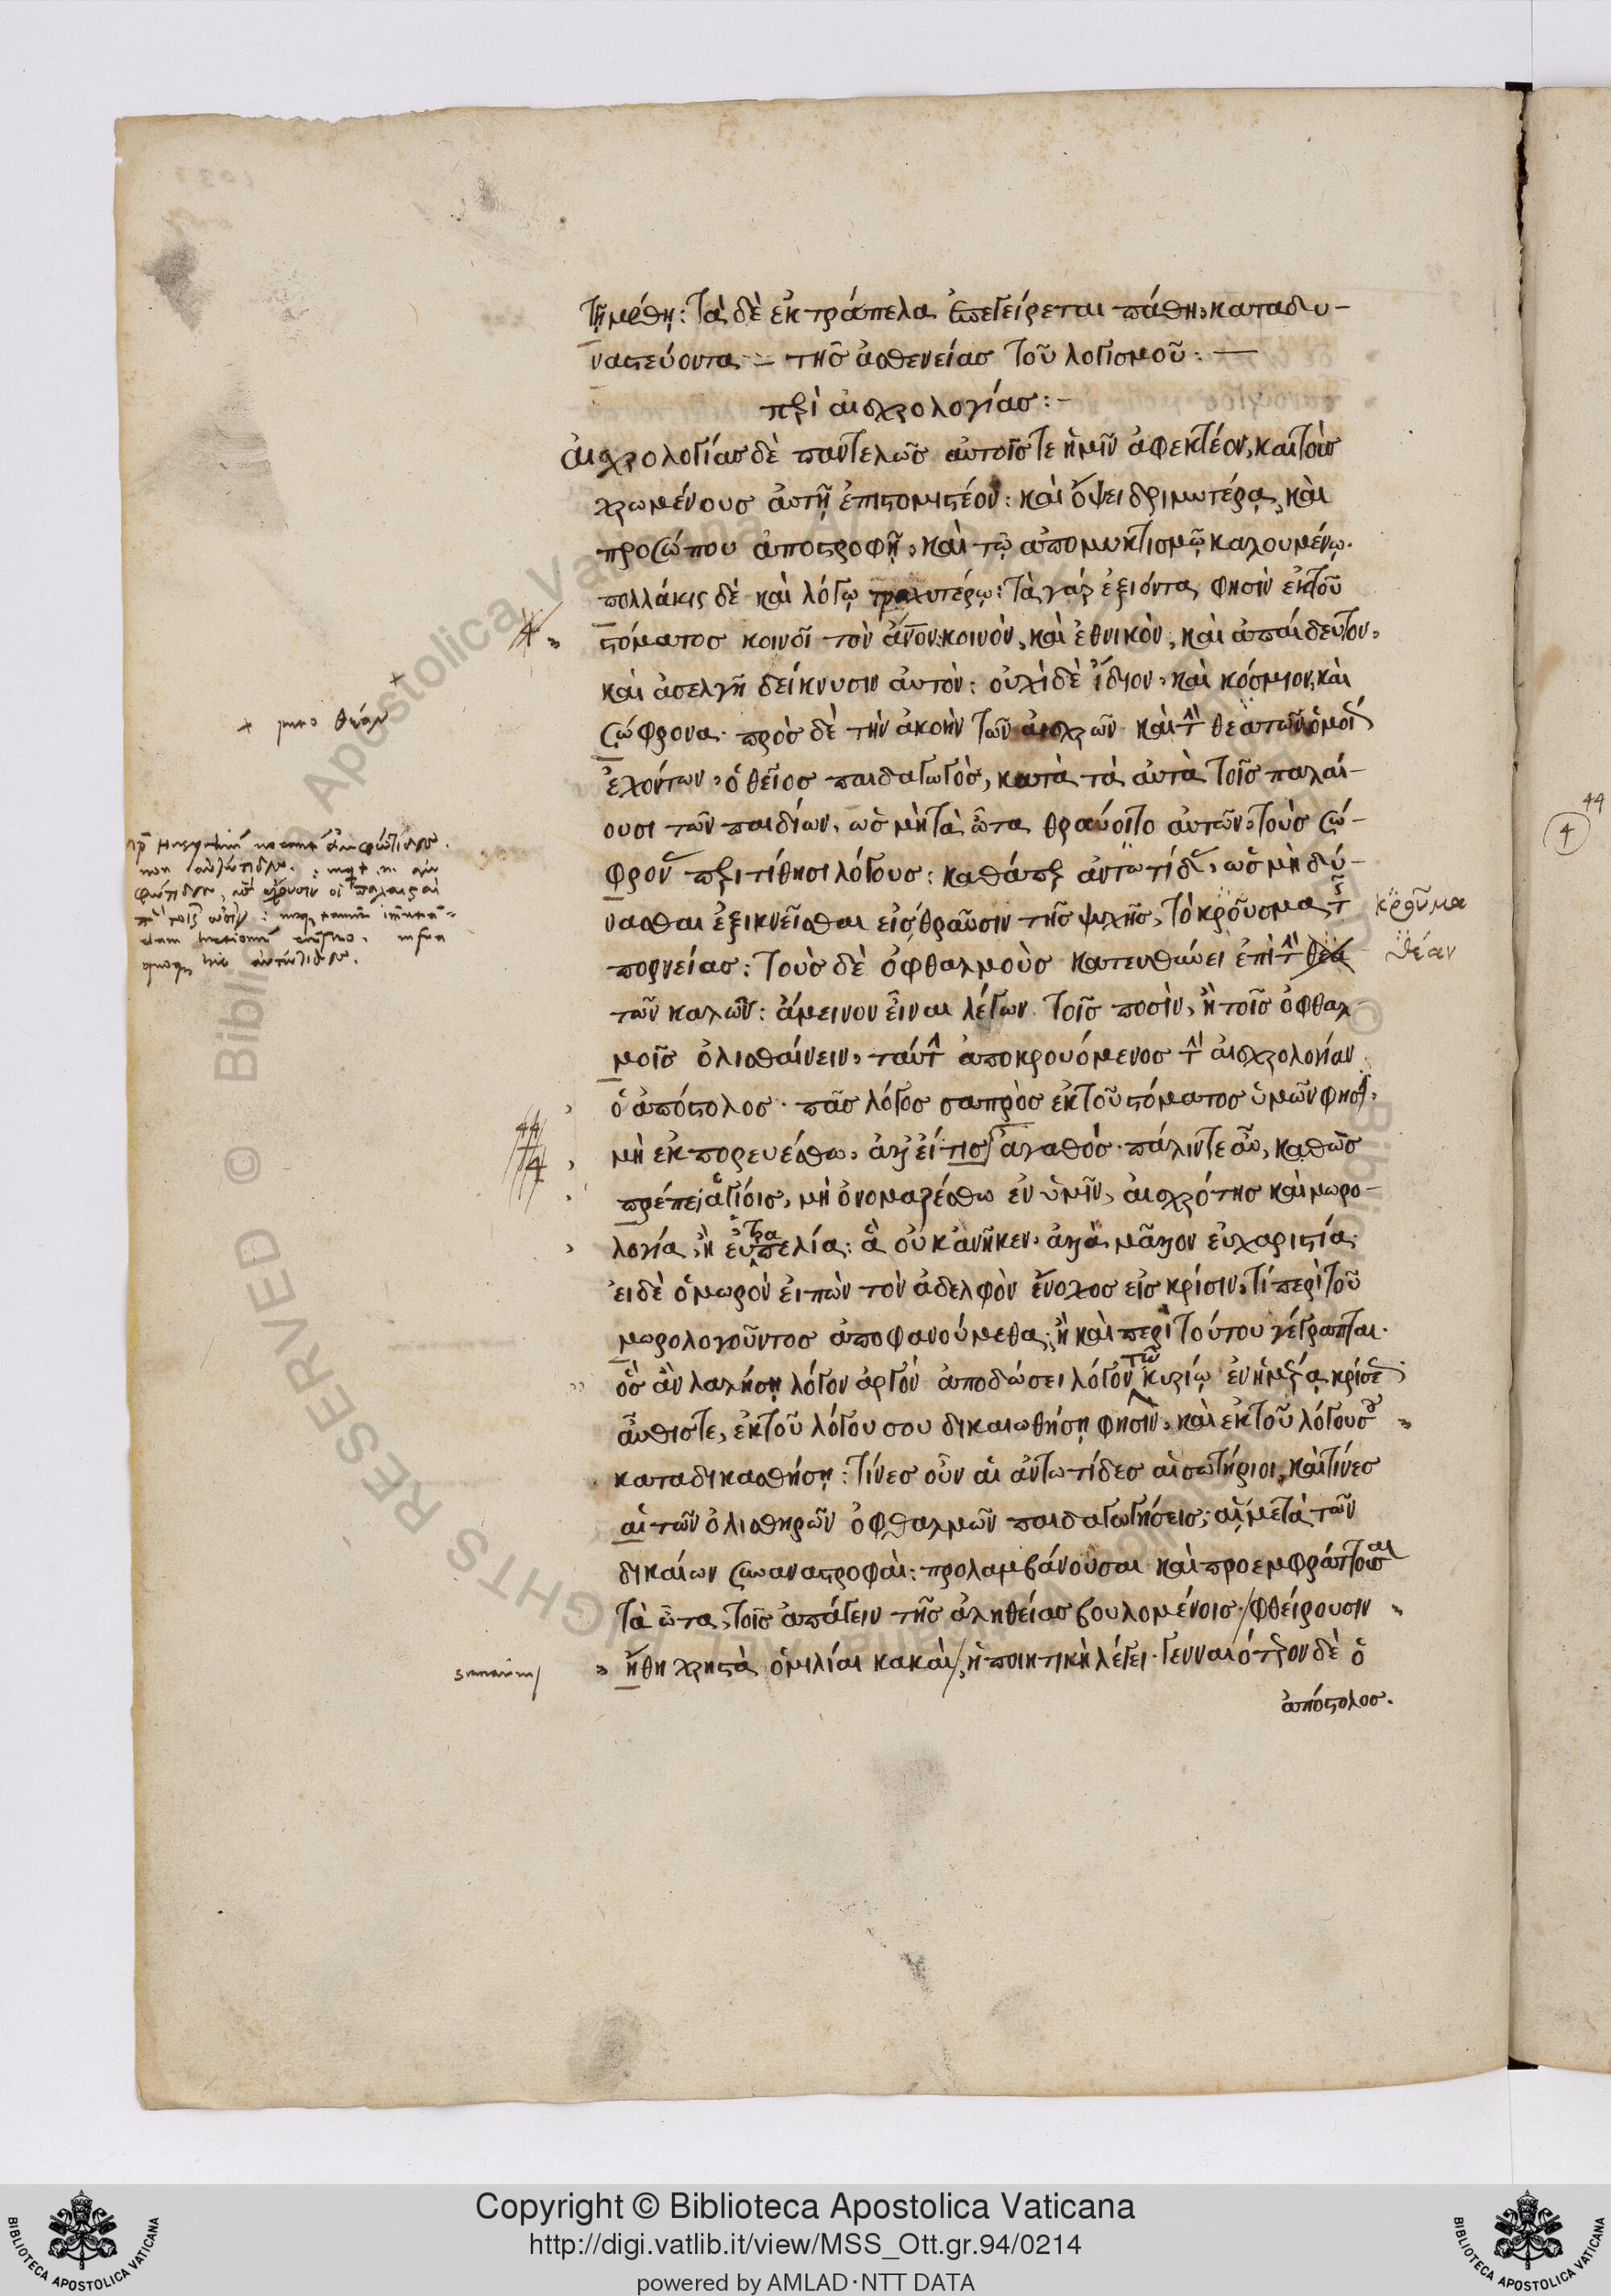 τῇ μέθῃ: τὰ δὲ ἐκτράπελα ἐπεγείρεται πάθη, καταδυ-
ναστεύοντα τῆς ἀσθενείας τοῦ λογισμοῦ:
περὶ αἰσχρολογίας:-
αἰσχρολογίας δὲ παντελῶς αὐτοῖς τε ἡμῖν ἀφεκτέον, καὶ τοὺς
χρωμένους αὐτῇ ἐπιστομιστέον: καὶ ὄψει δριμυτέρᾳ, καὶ
προσώπου ἀποστροφῇ, καὶ τῷ ἀπομυκτισμῷ καλουμένῳ.
πολλάκις δὲ καὶ λόγῳ τραχυτέρῳ: τὰ γὰρ ἐξιόντα φησὶν ἐκ τοῦ
στόματος κοινοῖ τὸν ἄνον: κοινὸν, καὶ ἐθνικὸν, καὶ ἀπαίδευτον,
καὶ ἀσελγῆ δείκνυσιν αὐτὸν: οὐχὶ δὲ ἴδιον, καὶ κόσμιον, καὶ
σώφρονα. πρὸς δὲ τὴν ἀκοὴν τῶν αἰσχρῶν καὶ τὴν θέα τῶν ὁμοίως
ἐχόντων, ὁ θεῖος παιδαγωγὸς, κατὰ τὰ αὐτὰ τοῖς παλαί-
ουσι τῶν παιδίων, ὡς μὴ τὰ ὦτα θραύοιτο αὐτῶν, τοὺς σώ-
φρονας περιτίθησι λόγους: καθάπερ ἀντωτίδας, ὡς μὴ δύ-
νασθαι ἐξικνεῖσθαι εἰς θραῦσιν τῆς ψυχῆς, τὸ κροῦσμα τῆς
κροῦμα
πορνείας: τοὺς δὲ ὀφθαλμοὺς κατευθύνει ἐπὶ τὴν θέα
θέαν
τῶν καλῶν: ἄμεινον εἶναι λέγων τοῖς ποσὶν, ἢ τοῖς ὀφθαλ-
μοῖς ὀλισθαίνειν, ταύτην ἀποκρουόμενος τὴν αἰσχρολογίαν
ὁ ἀπόστολος. πᾶς λόγος σαπρὸς ἐκ τοῦ στόματος ὑμῶν φησὶ,
μὴ ἐκπορευέσθω, ἀλλ' εἴ τις ἀγαθός. πάλιν τε αὖ, καθὼς
πρέπει ἁγίοις, μὴ ὀνομαζέσθω ἐν ὑμῖν, αἰσχρότης καὶ μωρο-
λογία, ἢ εὐτραπελία: ἃ οὐκ ἀνῆκεν, ἀλλὰ μᾶλλον εὐχαριστία.
εἰ δὲ ὁ μωρὸν εἰπὼν τὸν ἀδελφὸν ἔνοχος εἰς κρίσιν, τί περὶ τοῦ
μωρολογοῦντος ἀποφανούμεθα; ἢ καὶ περὶ τούτου γέγραπται.
ὃς ἂν λαλήσῃ λόγον ἀργὸν ἀποδώσει λόγον τῷ κυρίῳ ἐν ἡμέρᾳ κρίσεως
αὖθίς τε, ἐκ τοῦ λόγου σου δικαιωθήσῃ φησὶν, καὶ ἐκ τοῦ λόγου σου
καταδικασθήσῃ: τίνες οὖν αἱ ἀντωτίδες αἱ σωτήριοι, καὶ τίνες
αἱ τῶν ὀλισθηρῶν ὀφθαλμῶν παιδαγωγήσεις; αἱ μετὰ τῶν
δικαίων συναναστροφαὶ: προλαμβάνουσαι καὶ προεμφράττουσαι
τὰ ὦτα, τοῖς ἀπάγειν τῆς ἀληθείας βουλομένοις. φθείρουσιν
ἤθη χρηστὰ ὁμιλίαι κακαὶ, ἡ ποιητικὴ λέγει. γενναιότερον δὲ ὁ
ἀπόστολος.
44
4
Copyright © Biblioteca Apostolica Vaticana
http://digi.vatlib.it/view/MSS_Ott.gr.94/0214
powered by AMLAD·NTT DATA
BIBLIOTECA APOSTOLICA VATICANA
BIBLIOTECA APOSTOLICA VATICANA